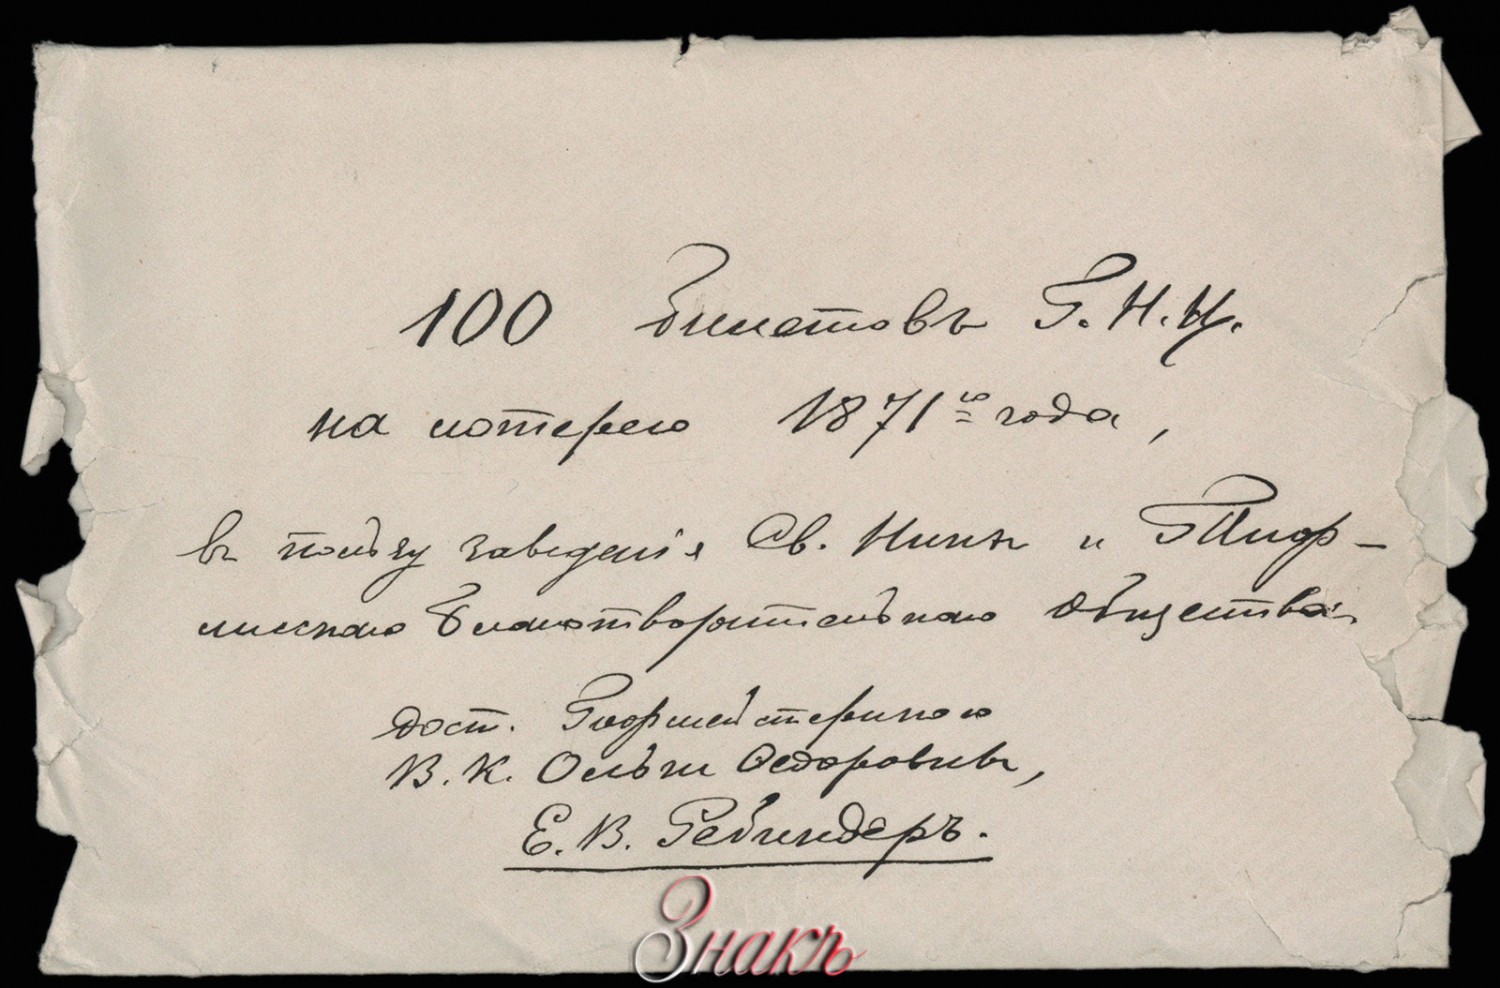 100 билетовъ Г. Н. И.
на лотерею 1871го года,
въ пользу заведенія Св. Нины и Тиф-
лисскаго Благотворительнаго Общества.
дост. Гофмейстериною
В. К. Ольги Ѳедоровны,
Е. В. Ребиндеръ.
Знакъ